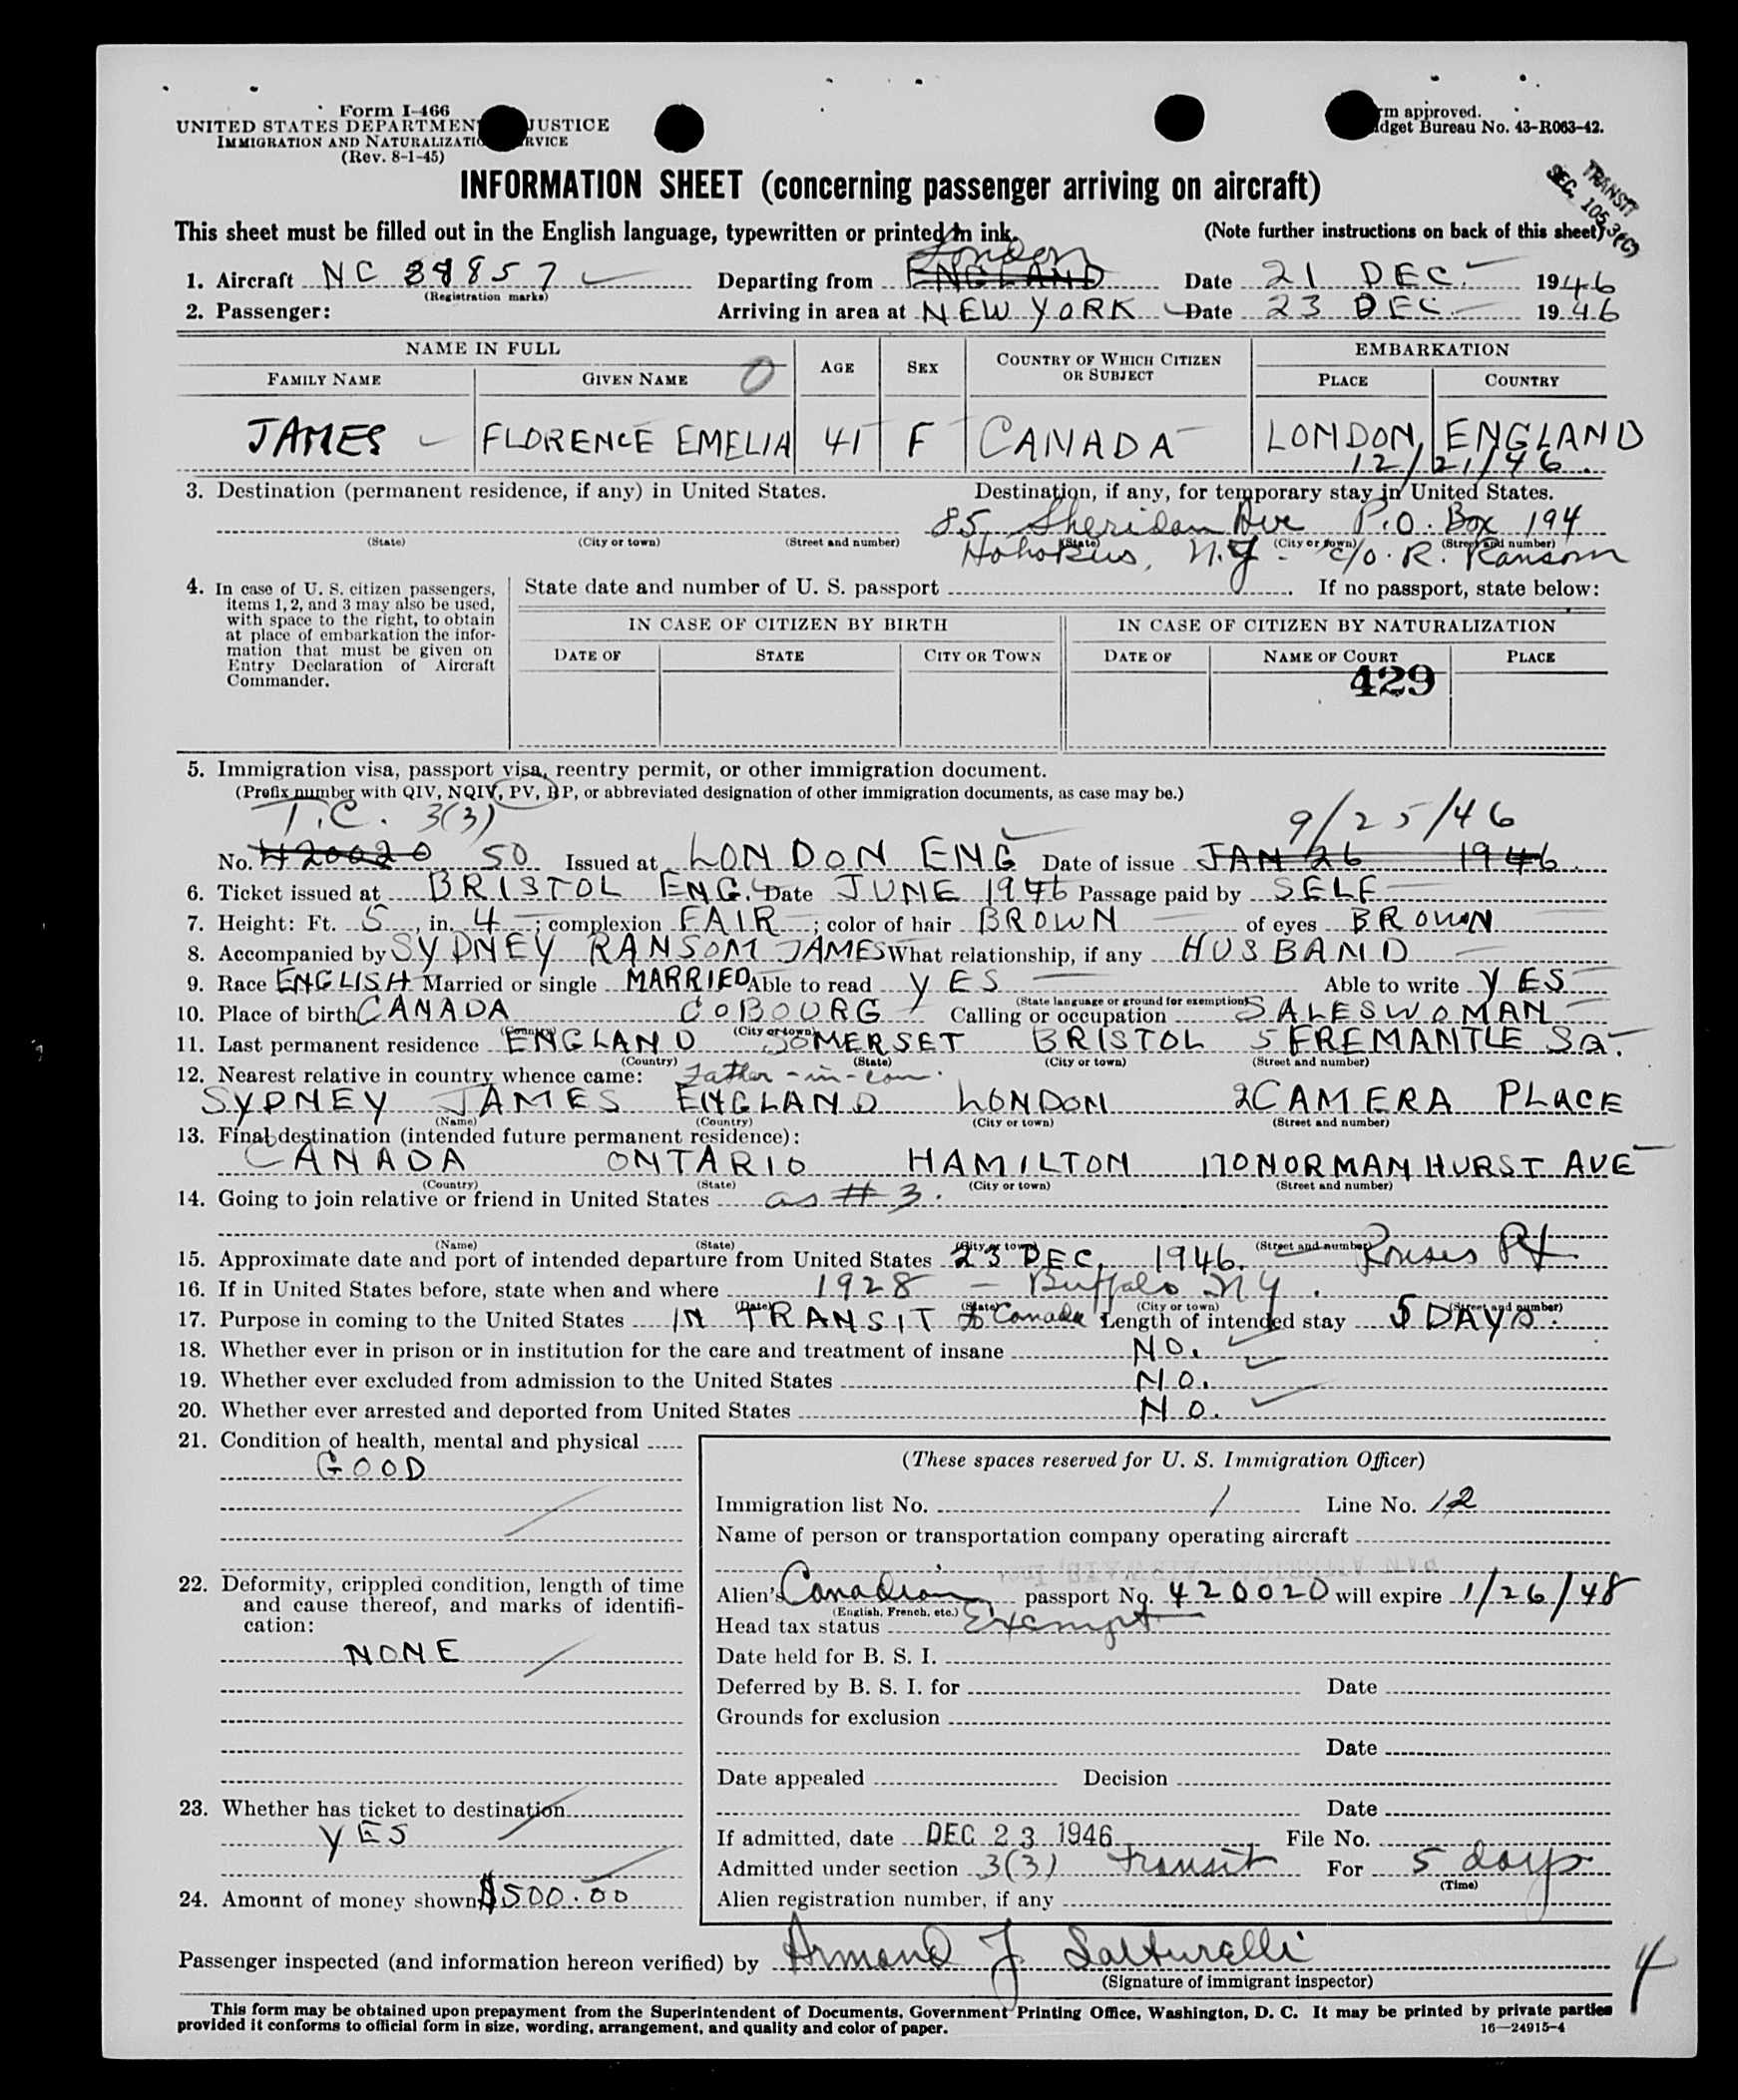 Form I-466
UNITED STATES DEPARTMEN JUSTICE
IMMIGRATION AND NATURALIZATIO RVICE
(Rev. 8-1-45)
rm approved.
dget Bureau No. 43-R063-42.
TRANSIT
SEC. 105.3(C)
INFORMATION SHEET (concerning passenger arriving on aircraft)
This sheet must be filled out in the English language, typewritten or printed in ink.
(Note further instructions on back of this sheet)
London
1. Aircraft NC 88857 Departing from ENGLAND Date 21 DEC. 1946
(Registration marks)
2. Passenger: Arriving in area at NEW YORK Date 23 DEC 1946
NAME IN FULL AGE SEX COUNTRY OF WHICH CITIZEN OR SUBJECT EMBARKATION
FAMILY NAME GIVEN NAME 0 PLACE COUNTRY
JAMES FLORENCE EMELIA 41 F CANADA LONDON, ENGLAND
12/21/46.
3. Destination (permanent residence, if any) in United States. Destination, if any, for temporary stay in United States.
85 Sheridan Ave P.O. Box 194
(State) (City or town) (Street and number) (State) (City or town) (Street and number)
Hohokus, N.J. - c/o. R. Ransom
4. In case of U. S. citizen passengers, items 1, 2, and 3 may also be used, with space to the right, to obtain at place of embarkation the information that must be given on Entry Declaration of Aircraft Commander.
State date and number of U. S. passport . If no passport, state below:
IN CASE OF CITIZEN BY BIRTH IN CASE OF CITIZEN BY NATURALIZATION
DATE OF STATE CITY OR TOWN DATE OF NAME OF COURT PLACE
429
5. Immigration visa, passport visa, reentry permit, or other immigration document.
(Prefix number with QIV, NQIV, PV, RP, or abbreviated designation of other immigration documents, as case may be.)
T.C. 3(3) 9/25/46
No. 420020 50 Issued at LONDON ENG Date of issue JAN 26 1946.
6. Ticket issued at BRISTOL ENG. Date JUNE 1946 Passage paid by SELF
7. Height: Ft. 5, in. 4; complexion FAIR; color of hair BROWN of eyes BROWN
8. Accompanied by SYDNEY RANSOM JAMES What relationship, if any HUSBAND
9. Race ENGLISH Married or single MARRIED Able to read YES Able to write YES
(State language or ground for exemption)
10. Place of birth CANADA COBOURG Calling or occupation SALESWOMAN
(Country) (City or town)
11. Last permanent residence ENGLAND SOMERSET BRISTOL 5 FREMANTLE SQ.
(Country) (State) (City or town) (Street and number)
12. Nearest relative in country whence came: Father-in-law.
SYDNEY JAMES ENGLAND LONDON 2 CAMERA PLACE
(Name) (Country) (City or town) (Street and number)
13. Final destination (intended future permanent residence):
CANADA ONTARIO HAMILTON 170 NORMANHURST AVE
(Country) (State) (City or town) (Street and number)
14. Going to join relative or friend in United States as #3.
(Name) (State) (City or town) (Street and number)
15. Approximate date and port of intended departure from United States 23 DEC. 1946. Rouses Pt
16. If in United States before, state when and where 1928 - Buffalo N.Y.
(Date) (State) (City or town) (Street and number)
17. Purpose in coming to the United States IN TRANSIT to Canada Length of intended stay 5 DAYS.
18. Whether ever in prison or in institution for the care and treatment of insane NO.
19. Whether ever excluded from admission to the United States NO.
20. Whether ever arrested and deported from United States NO.
21. Condition of health, mental and physical
GOOD
22. Deformity, crippled condition, length of time and cause thereof, and marks of identification:
NONE
23. Whether has ticket to destination
YES
24. Amount of money shown $500.00
(These spaces reserved for U. S. Immigration Officer)
Immigration list No. 1 Line No. 12
Name of person or transportation company operating aircraft
Alien's Canadian passport No. 420020 will expire 1/26/48
(English, French, etc.)
Head tax status Exempt
Date held for B. S. I.
Deferred by B. S. I. for Date
Grounds for exclusion
Date
Date appealed Decision
Date
If admitted, date DEC 23 1946 File No.
Admitted under section 3(3) transit For 5 days
(Time)
Alien registration number, if any
Passenger inspected (and information hereon verified) by Armand J
(Signature of immigrant inspector)
4
This form may be obtained upon prepayment from the Superintendent of Documents, Government Printing Office, Washington, D. C. It may be printed by private parties
provided it conforms to official form in size, wording, arrangement, and quality and color of paper.
16—24915-4